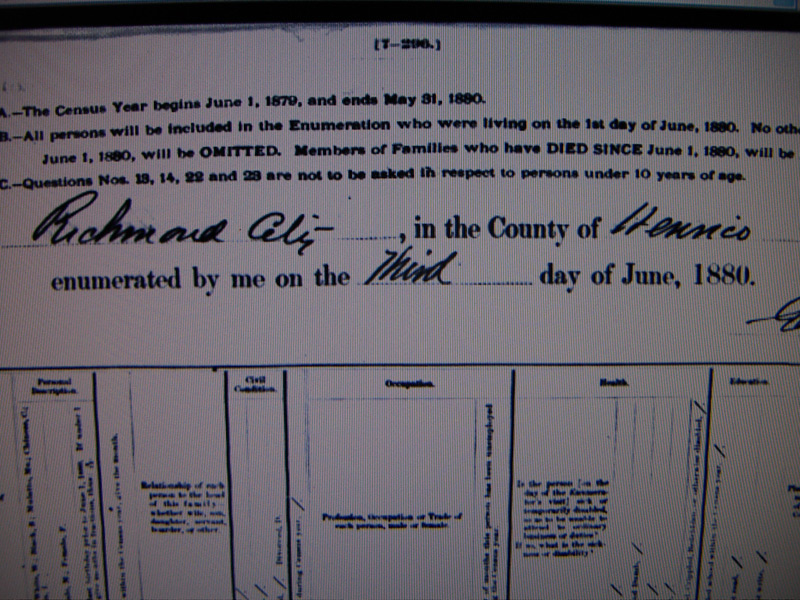 [7-296.]
A.—The Census Year begins June 1, 1879, and ends May 31, 1880.
B.—All persons will be included in the Enumeration who were living on the 1st day of June, 1880. No othe
June 1, 1880, will be OMITTED. Members of Families who have DIED SINCE June 1, 1880, will be
C.—Questions Nos. 13, 14, 22 and 23 are not to be asked in respect to persons under 10 years of age.
Richmond City, in the County of Henrico
enumerated by me on the Third day of June, 1880.
Personal Description.
Civil Condition.
Occupation.
Health.
Education.
within the Census year, give the month.
Relationship of each
person to the head
of this family—
whether wife, son,
daughter, servant,
boarder, or other.
during Census year.
Profession, Occupation or Trade of
each person, male or female.
of months this person has been unemployed
Is the person [on the
day of the Enumera-
tor's visit] sick or
temporarily disabled,
so as to be unable to
attend to ordinary
business or duties?
If so, what is the sick-
ness or disability?